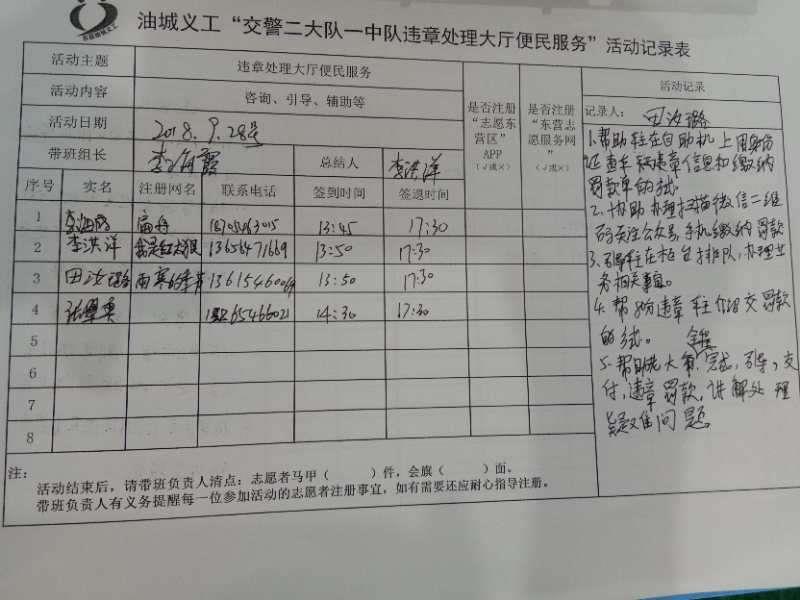 油城义工“交警二大队一中队违章处理大厅便民服务”活动记录表
活动主题 违章处理大厅便民服务
活动内容 咨询、引导、辅助等
活动日期 2018.9.28号
带班组长 总结人 李洪洋
是否注册“志愿东营区”APP（√或×）
是否注册“东营志愿服务网”（√或×）
序号 实名 注册网名 联系电话 签到时间 签退时间
1 13:45 17:30
2 李洪洋 13656471669 13:50 17:30
3 田汝璐 13:50 17:30
4 14:30 17:30
5
6
7
8
活动记录
记录人：田汝璐
1.帮助车主在自助机上用身份
证查车辆违章信息和缴纳
罚款单的
2.协助办理扫描微信二维
码关注公众号，手机缴纳罚款
3.引导车主在柜台排队，办理业
务相关事宜。
4.帮助违章车主介绍交罚款
的
5.帮助 大 完成，引导，交
付，违章罚款，讲解处理
疑难问题。
注：
活动结束后，请带班负责人清点：志愿者马甲（ ）件，会旗（ ）面。
带班负责人有义务提醒每一位参加活动的志愿者注册事宜，如有需要还应耐心指导注册。